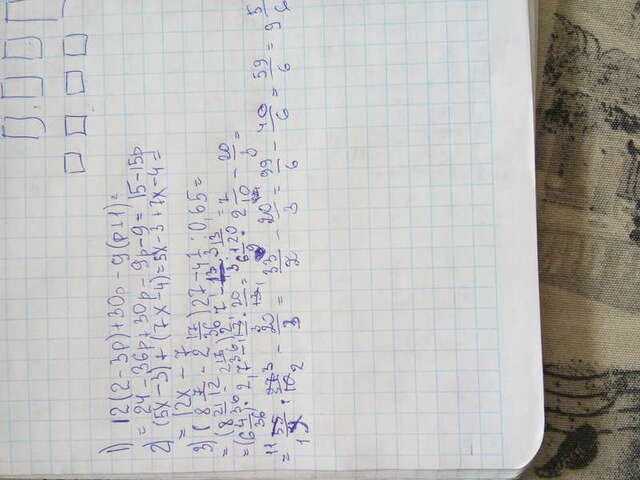 1) 12(2-3p)+30p-9(p+1)=
= 24-36p+30p-9p-9= 15-15p
2) (5x-3)+(7x-4)=5x-3+7x-4=
= 12x-7
3) (8 7/12 - 2 17/36) 27-4 1/3 : 0,65=
= (8 21/36 - 2 17/36) 2,7 - 13/3 : 13/20
= (6 4/36) · 2,7 - 13/3 · 20/13 = 6 1/9 · 2 7/10 - 20/3 =
= 55/9 · 27/10 - 20/3 = 33/2 - 20/3 = 99/6 - 40/6 = 59/6 = 9 5/6